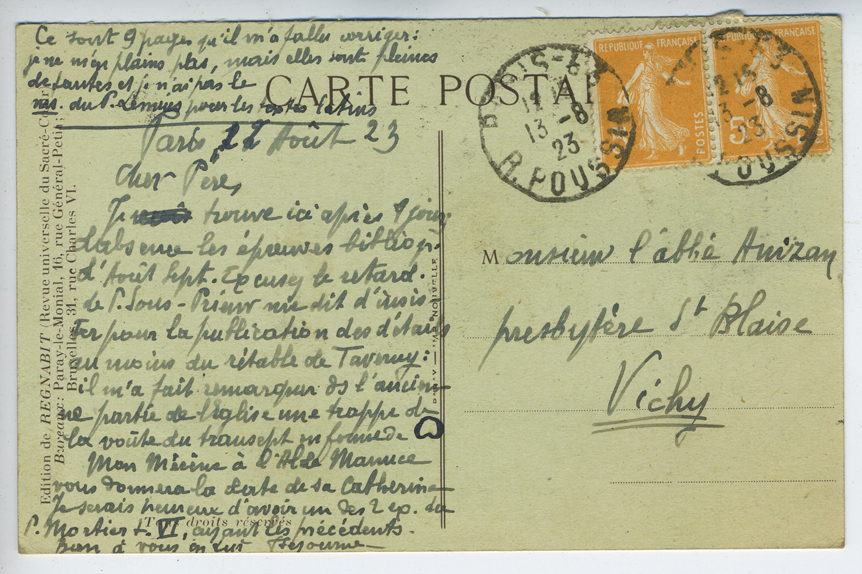 Ce sont 9 pages qu'il m'a fallu corriger:
je ne m'en plains pas, mais elles sont pleines
de fautes et je n'ai pas le
ms. du P. pour les textes latins
CARTE POSTALE
Paris 12 Août 23
Cher Père,
Je trouve ici après 9 jours
d'absence les épreuves bibliogr.
d'Août Sept. Excusez le retard.
Le P. Sous-Prieur me dit d'insis-
ter pour la publication des détails
au moins du rétable de Taverny:
il m'a fait remarquer ds l'ancien-
ne partie de l'église une trappe de
la voûte du transept en forme de
Mon Mécène à l'Alde Manuce
vous donnera la date de sa Catherine
Je serais heureux d'avoir un des 2 ex. du
P. Mortier t. VI, ayant les précédents.
Bien à vous en
Monsieur l'abbé Anizan
presbytère St Blaise
Vichy
REPUBLIQUE FRANÇAISE
POSTES
REPUBLIQUE FRANÇAISE
5
13 -8
23
R. POUSSIN
13 -8
23
POUSSIN
Edition de REGNABIT (Revue universelle du Sacré-Cœur)
Bureaux: Paray-le-Monial, 16, rue Général-Petit;
Bruxelles, 31, rue Charles VI.
droits réservés